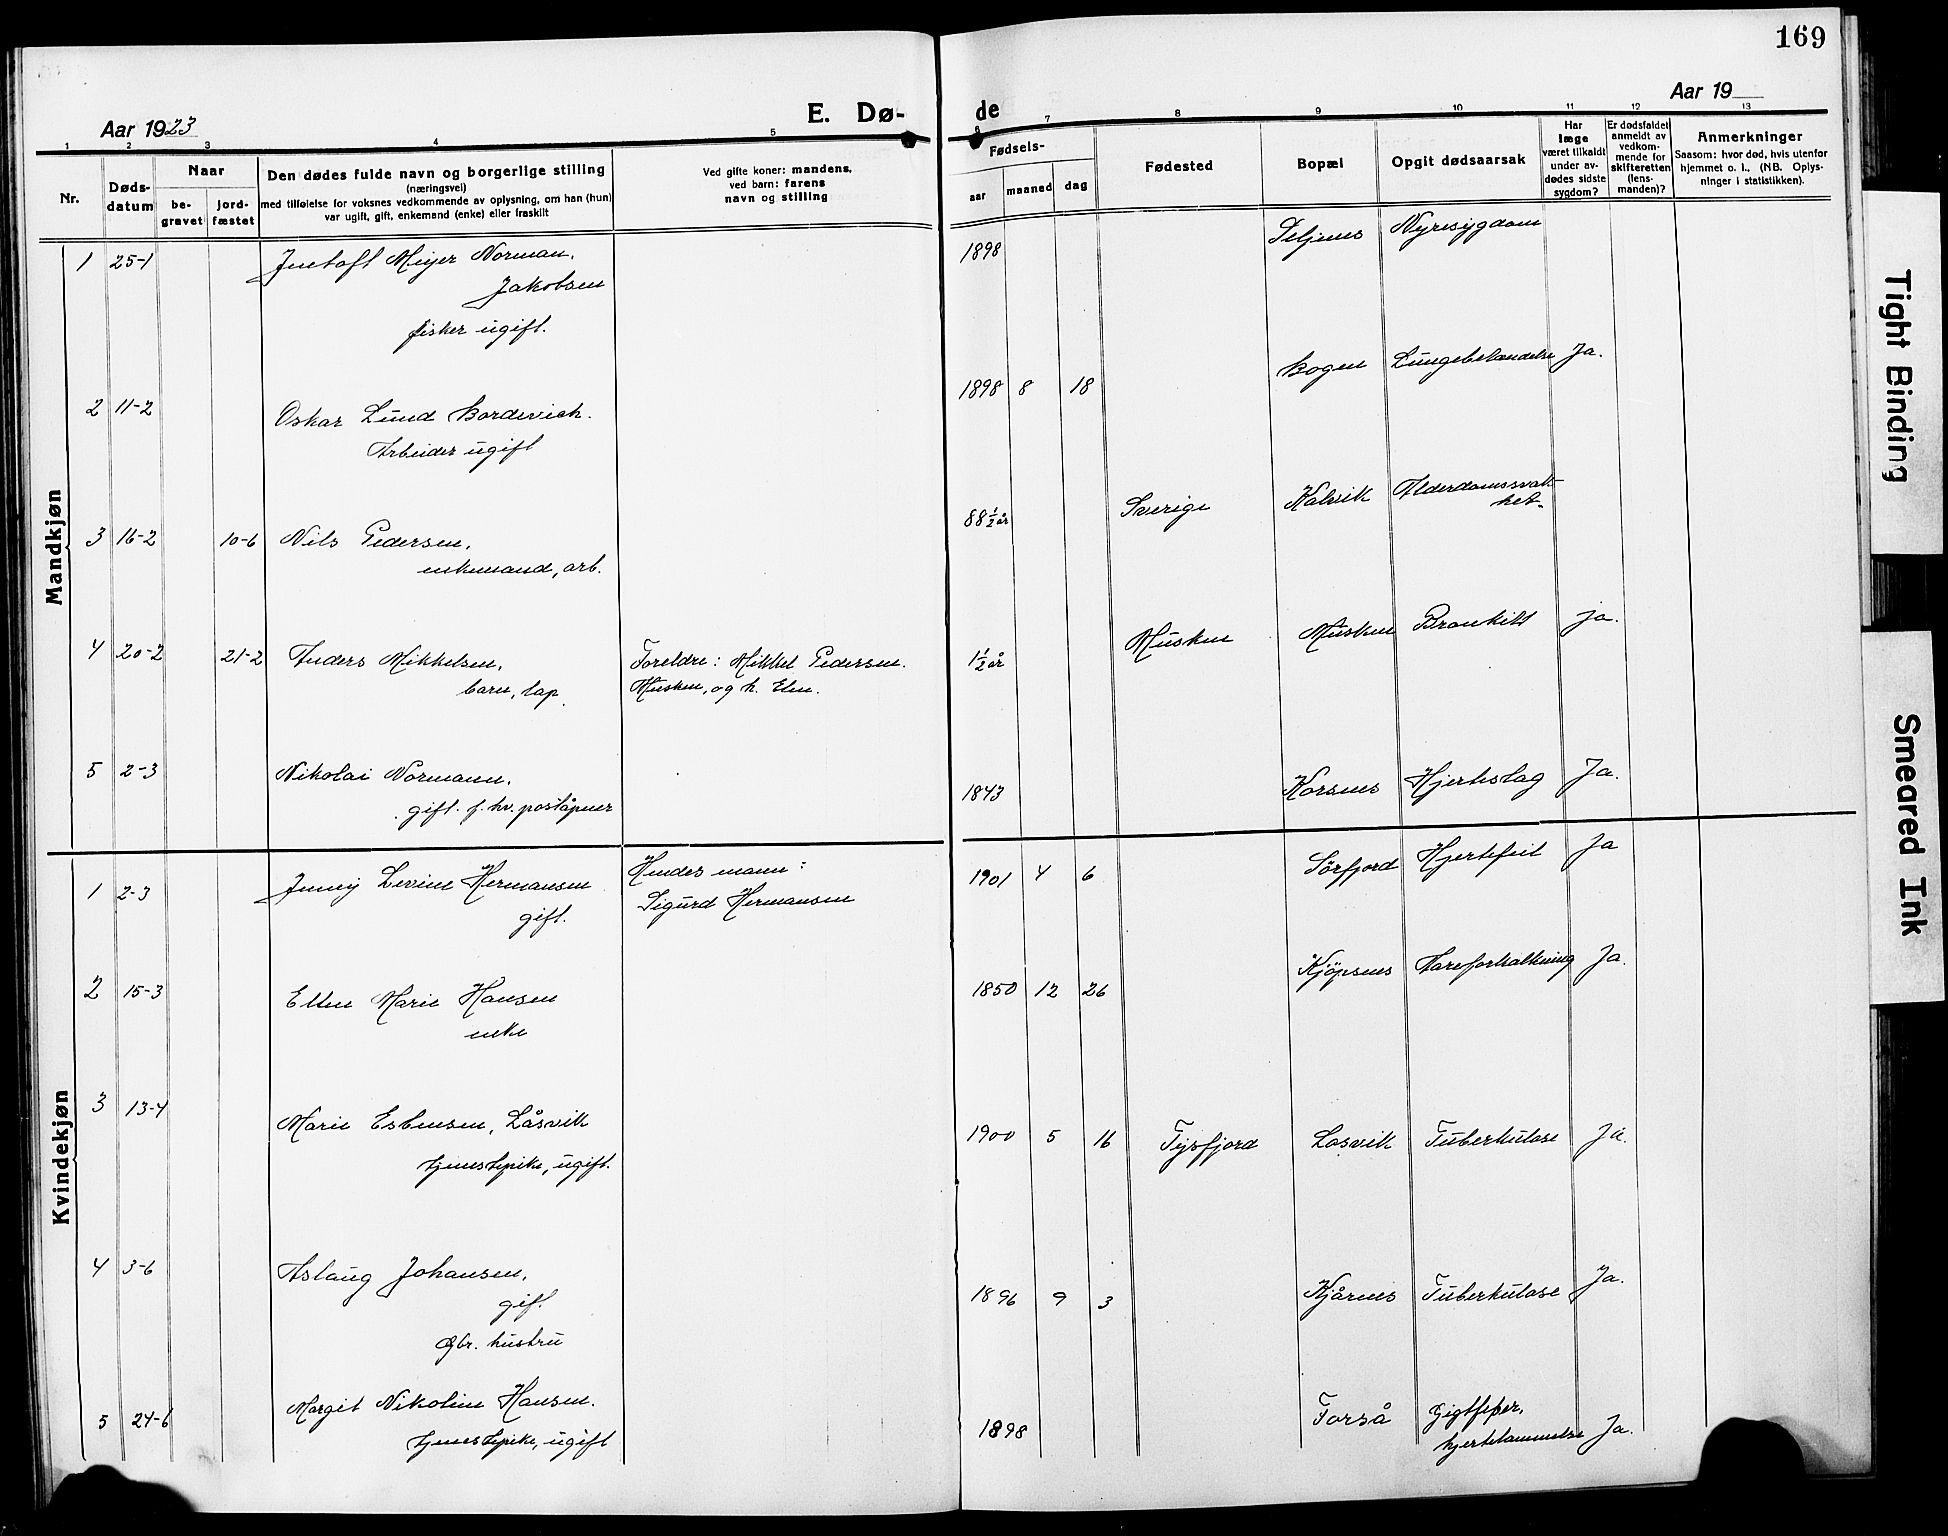 169
Aar 1923
E. Dø-
de
Aar 19
1 2 3 4 5 6 7 8 9 10 11 12 13
Nr.
Døds-
datum
Naar
be-
gravet
jord-
fæstet
Den dødes fulde navn og borgerlige stilling
(næringsvei)
med tilføielse for voksnes vedkommende av oplysning, om han (hun)
var ugift, gift, enkemand (enke) eller fraskilt
Ved gifte koner: mandens,
ved barn: farens
navn og stilling
Fødsels-
aar
maaned
dag
Fødested
Bopæl
Opgit dødsaarsak
Har
læge
været tilkaldt
under av-
dødes sidste
sygdom?
Er dødsfaldet
anmeldt av
vedkom-
mende for
skifteretten
(lens-
manden)?
Anmerkninger
Saasom: hvor død, hvis utenfor
hjemmet o. l., (NB. Oplys-
ninger i statistikken).
Mandkjøn
1 25-1 Meyer Norman, 1898 Seljenes Nyresygdom
Jakobsen
fisker ugift.
2 11-2 Oskar Lund Bordevich. 1898 8 18 Bogen Lungebetændelse Ja.
Arbeider ugift
3 16-2 10-6 Nils Pedersen, 88 1/2 år Sverige Kalvik Alderdomssvak-
enkemand, arb. het.
4 20-2 21-2 Anders Mikkelsen, Foreldre: Mikkel Pedersen. 1 1/2 år Musken Musken Bronkitt ja.
barn, lap. Musken, og h. Elen.
5 2-3 Nikolai Normann, 1843 Korsnes Hjerteslag Ja.
gift. f. hv. poståpner
Kvindekjøn
1 2-3 Jenny Levine Hermansen Hendes mann: 1901 4 6 Sörfjord Hjertefeil Ja
gift. Sigurd Hermansen
2 15-3 Ellen Marie Hansen 1850 12 26 Kjöpsnes Åreforkalkning Ja.
enke
3 13-4 Marie Esbensen, Låsvik 1900 5 16 Tysfjord Losvik Tuberkulose Ja.
tjenestepike, ugift.
4 3-6 Aslaug Johansen, 1896 9 3 Kjårnes Tuberkulose Ja.
gif.
Gbr. hustru
5 24-6 Margit Nikoline Hansen. 1898 Forså Gigtfeber,
tjenestepike, ugift hjertelammelse Ja.
Tight Binding
Smeared Ink